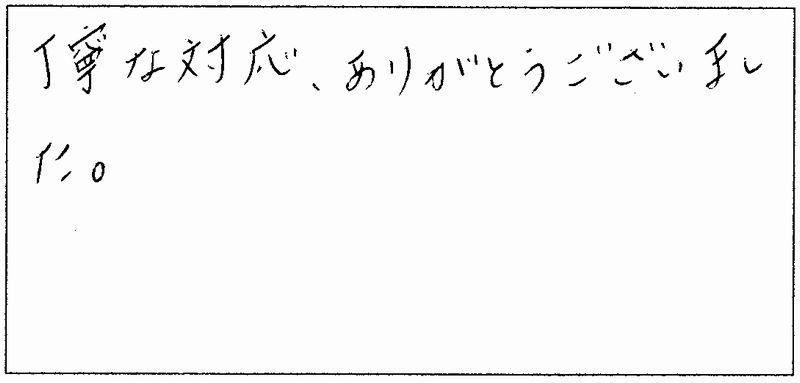 丁寧な対応、ありがとうございまし
た。